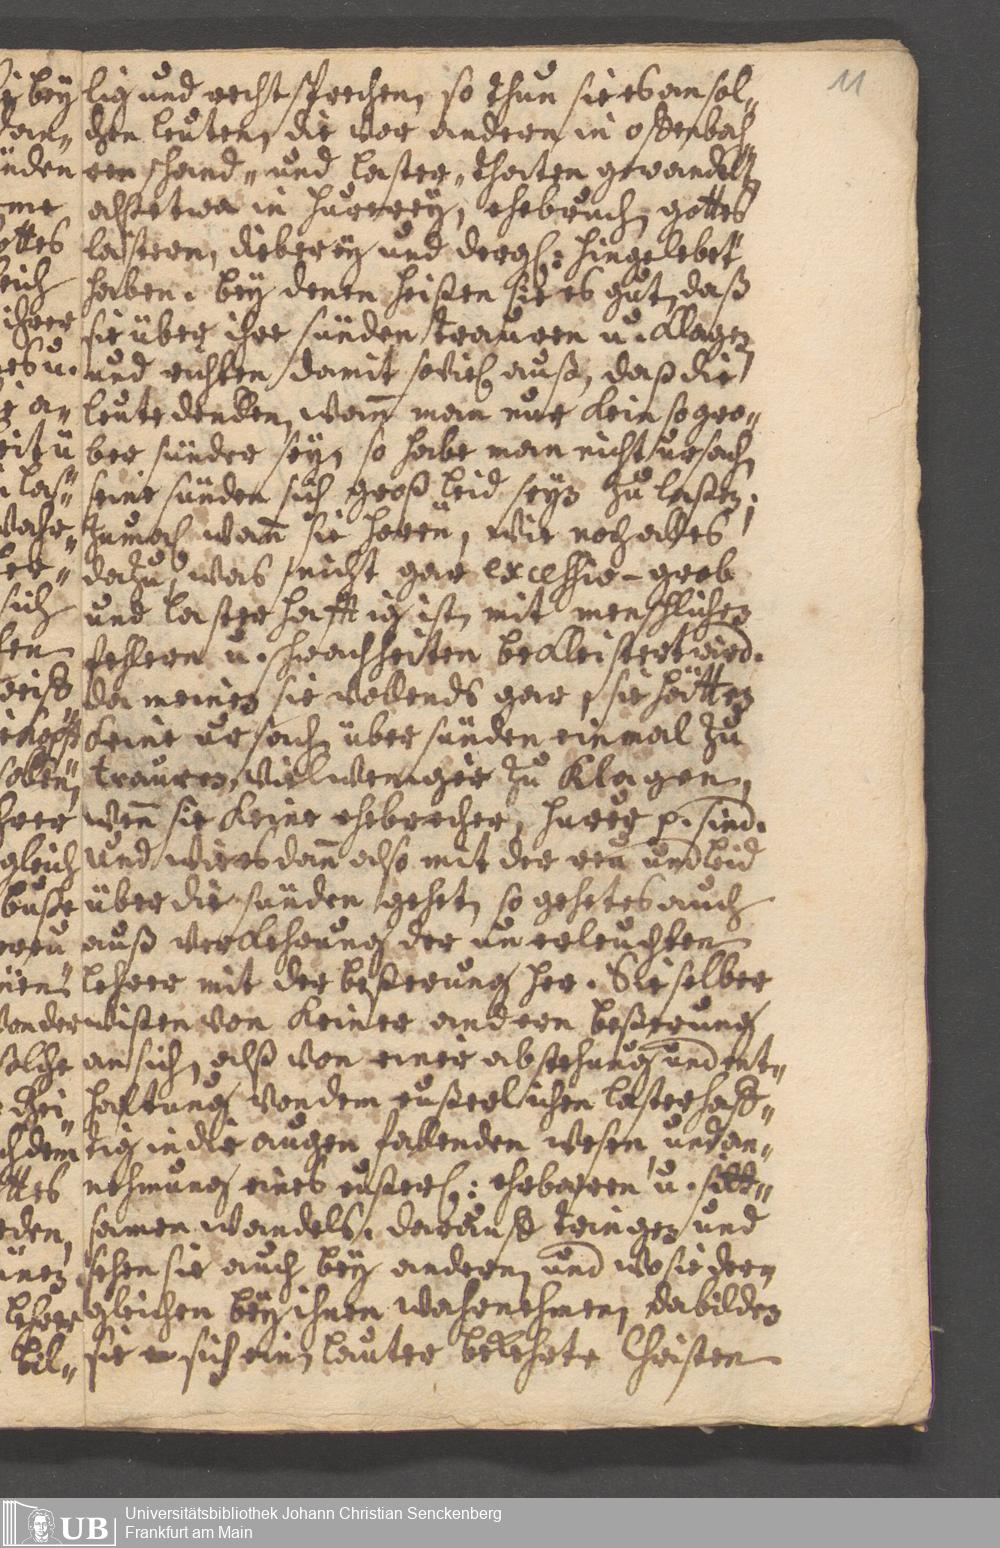 11
lig und recht sprechen, so thun sie es an sol-
chen leuten, die vor andern in offenbah-
ren schand- und laster-thaten gewandelt,
alß etwa in hurerey, ehebruch, gottes
lästern, dieberey und dergl: hingelebet
haben. bey denen heißen sie es gut, daß
sie über ihre sünden trauren u. klagen
und richten damit soviel auß, daß die
leute dencken, wann man nur kein so gro-
ber sünder sey, so habe man nicht ursach
seine sünden sich groß leid seyn zu laßen.
Zumal wann sie hören, wie noch alles
dazu, was nicht gar excessiv-grob
und lasterhafftig ist, mit menschlichen
fehlern u. schwachheiten bekleistert wird.
da meinen sie vollends gar, sie hätten
keine ursach über sünden einmal zu
trauren, viel weniger zu klagen,
wenn sie keine ehebrecher, hurer p. sind.
Und wie es dann also mit der reu und leid
über die sünden gehet, so gehet es auch
auß verkehrung der unerleuchten
lehrer mit der beßerung her. Sie selber
wißen von keiner andern beßerung
an sich, alß von einer abstehung und ent-
haltung von dem eußerlichen lasterhaff-
tig in die augen fallenden wesen, und an-
nehmung eines eußerl: ehrbaren u. sitt-
samen wandels. darauff dringen und
sehen sie auch bey andern, und wo sie der-
gleichen bey ihnen wahrnehmen, da bilden
sie sich ein, lauter bekehrte Christen
Universitätsbibliothek Johann Christian Senckenberg
Frankfurt am Main
UB